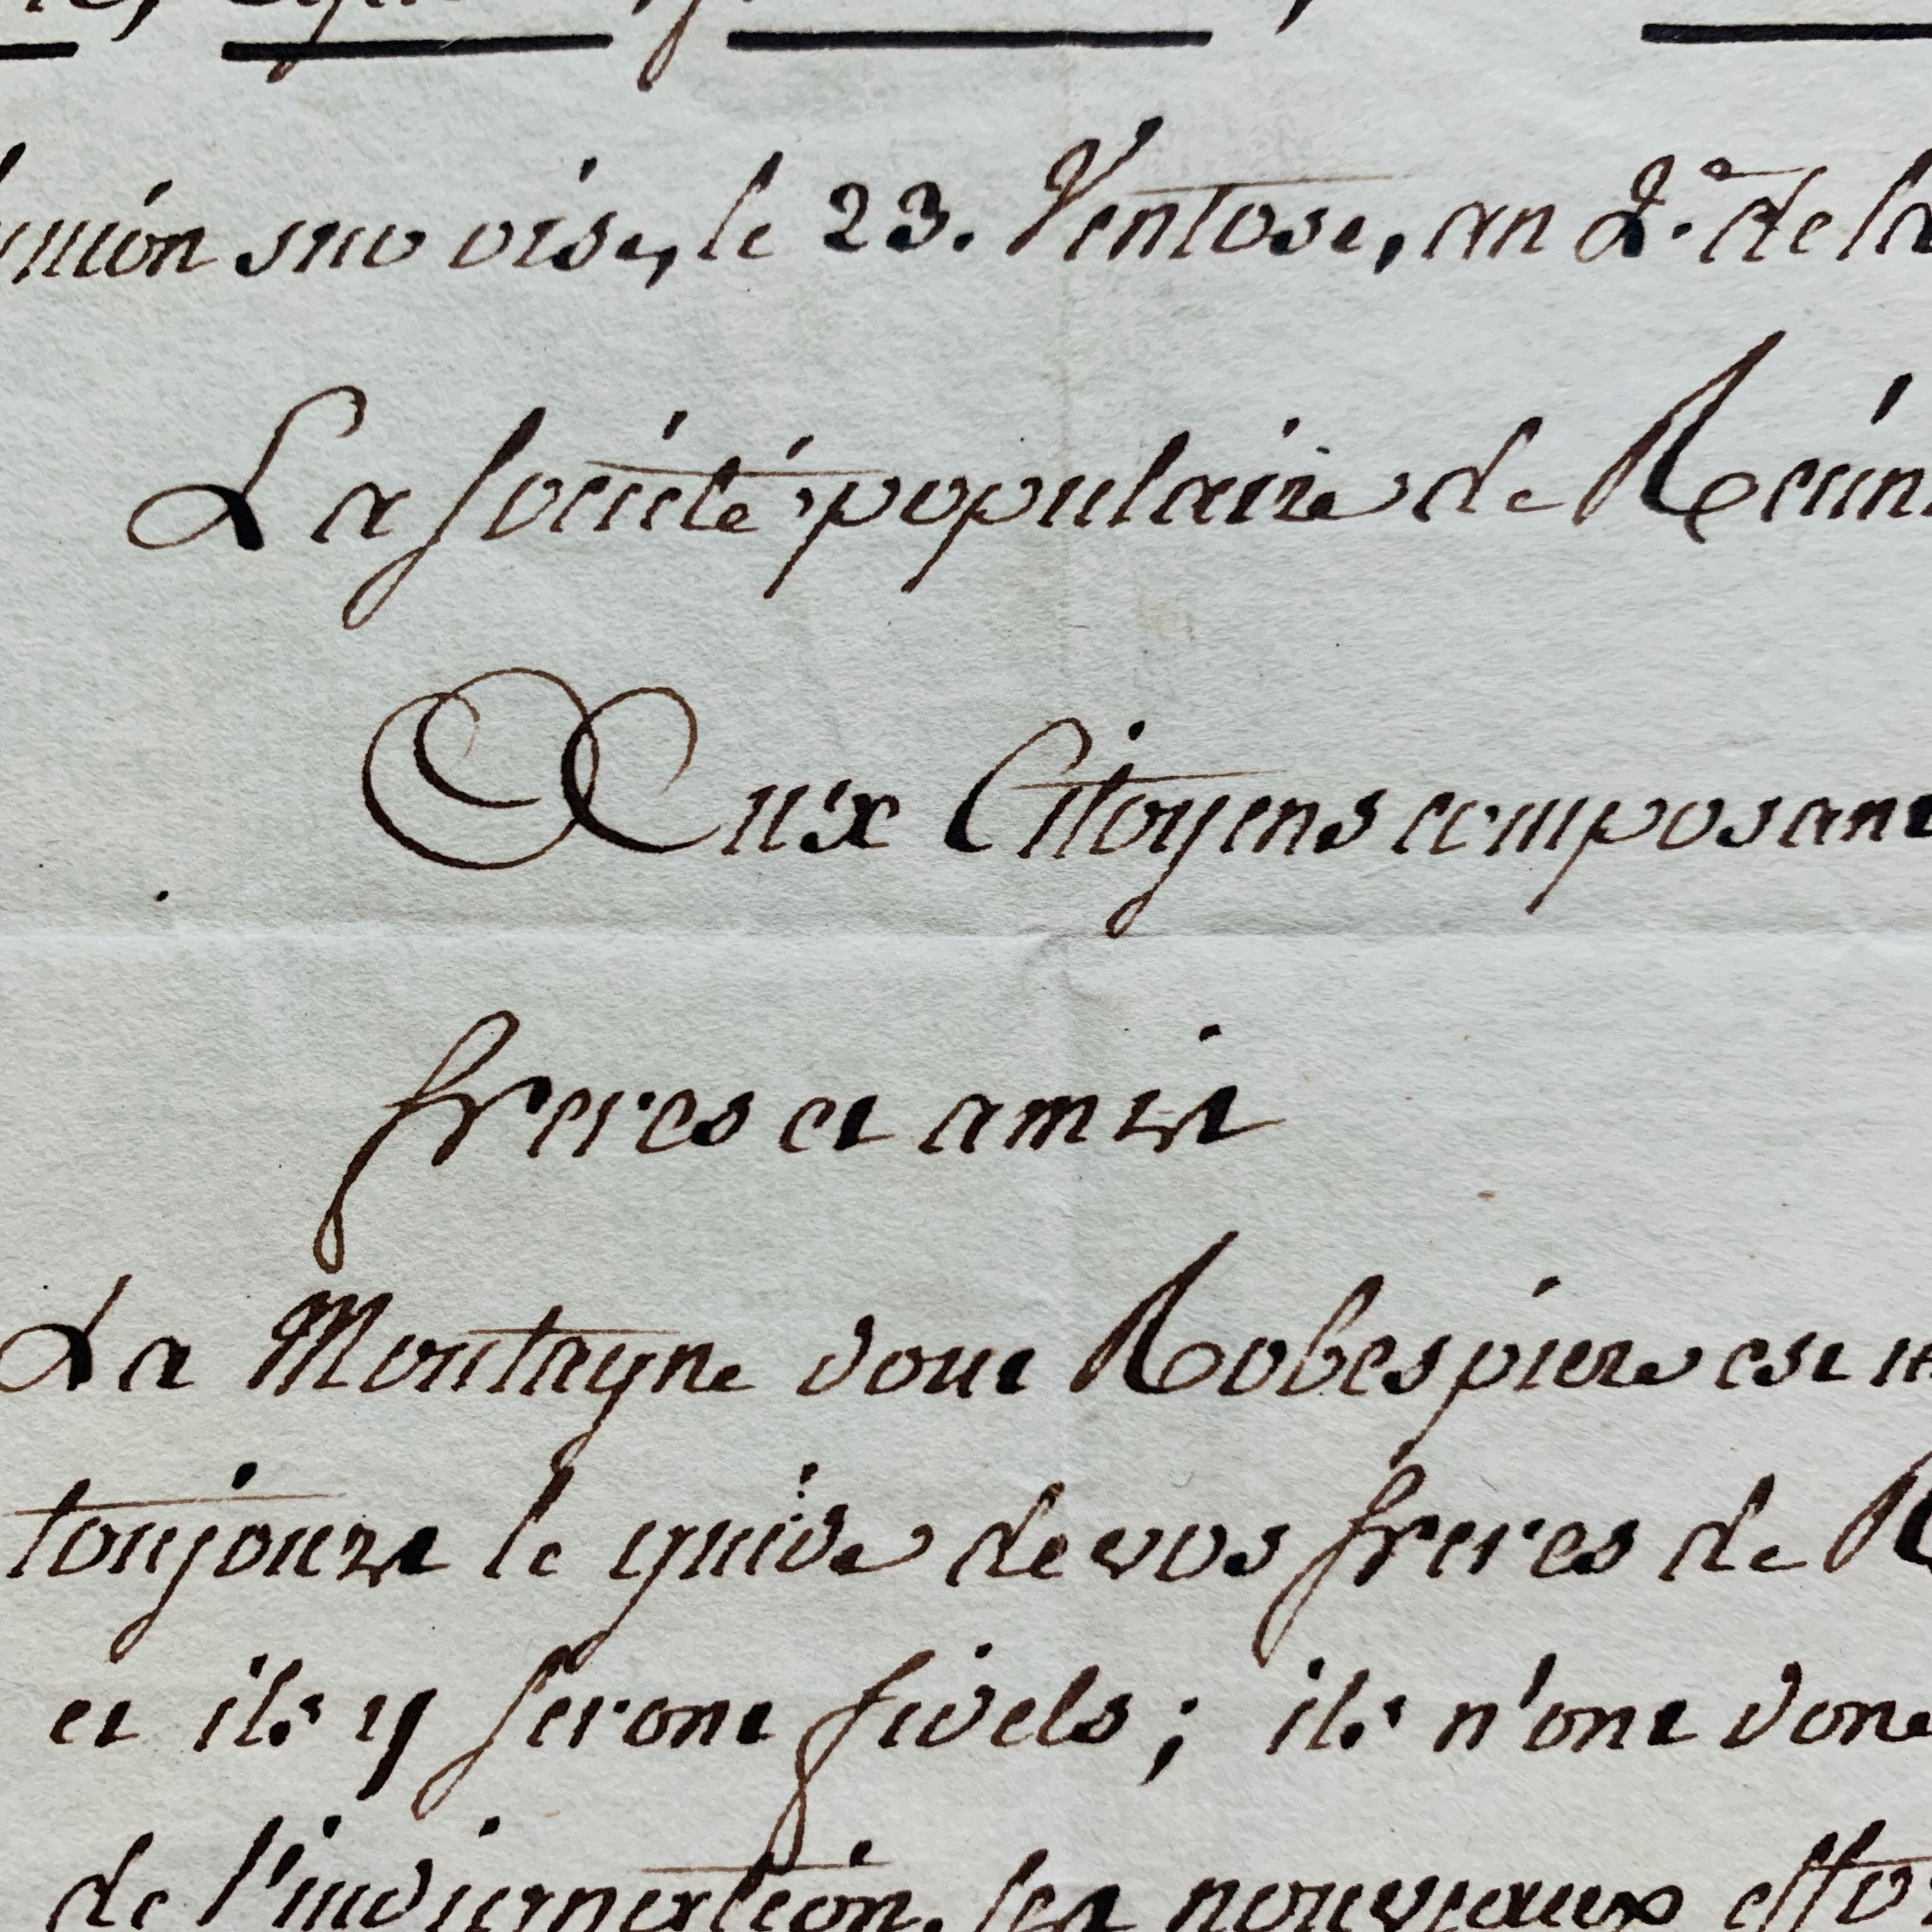 sur oise, le 23. Ventose, an 2.e de la
La Société populaire de Réun
Aux Citoyens composant
freres et amis
La Montagne dont Robespierre est
toujours le guide de vos freres de R
et ils y seront fidels ; ils n'ont donc
de l'indignation, les nouveaux effo